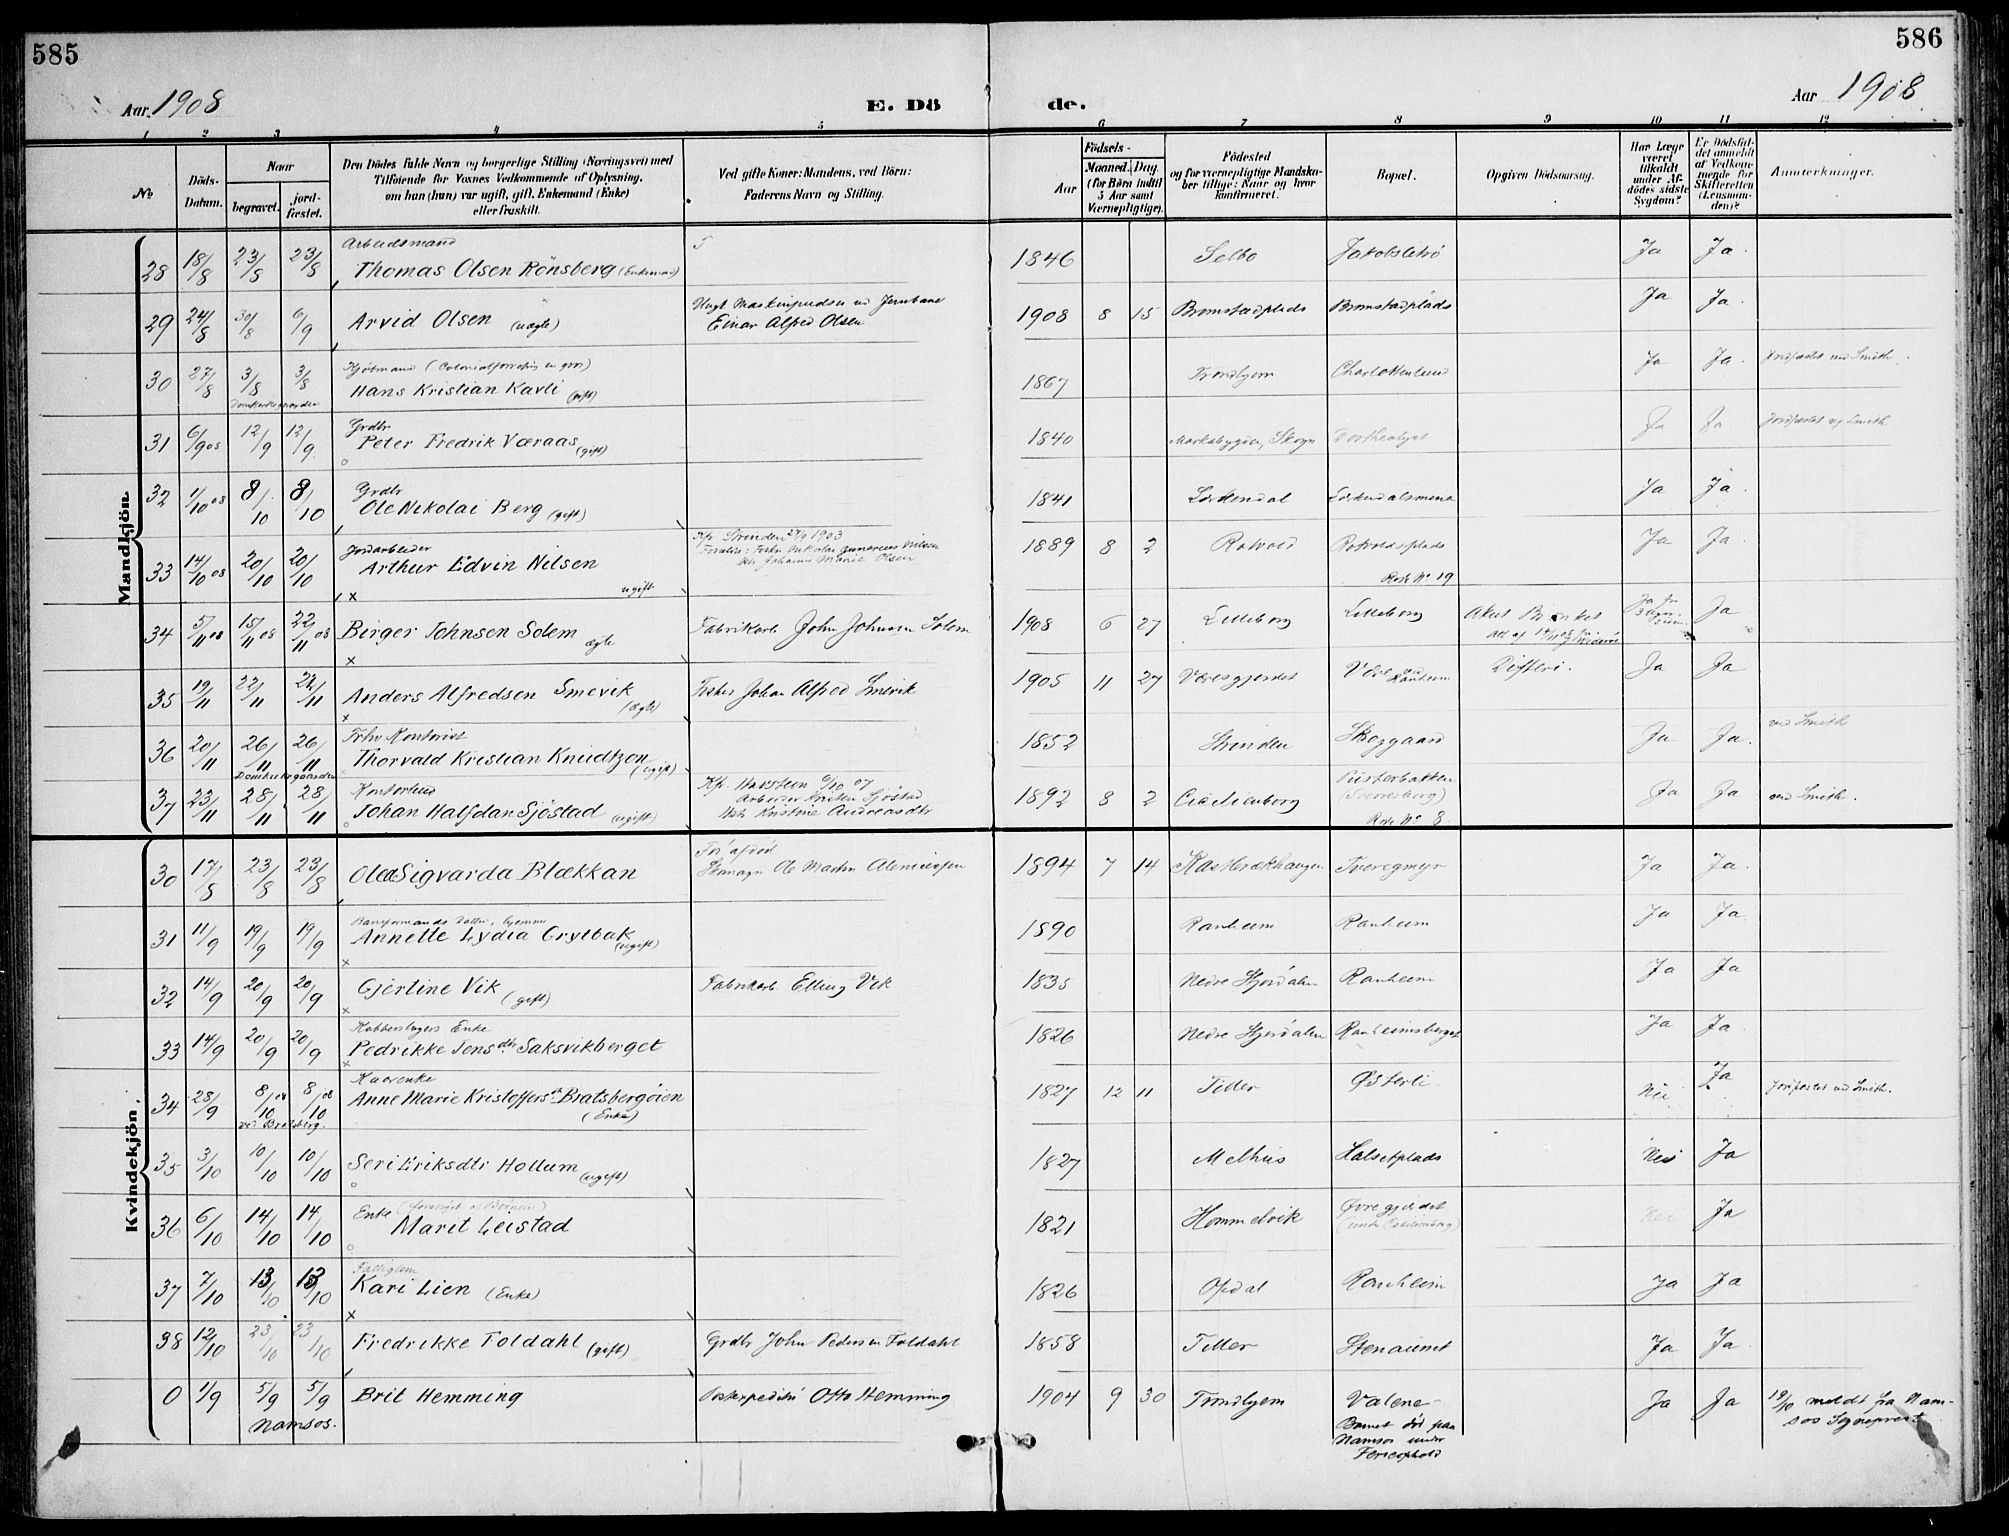 585
586
Aar 1908
E. Dö
de.
Aar 1908
1 2 3 4 5 6 7 8 9 10 11 12
No
Döds-Datum.
Naar
begravet.
jord-fæstet.
Den Dödes fulde Navn og borgerlige Stilling (Næringsvei) med
Tilföiende for Voxnes Vedkommende af Oplysning,
om han (hun) var ugift, gift, Enkemand (Enke)
eller fraskilt.
Ved gifte Koner: Mandens, ved Börn:
Faderens Navn og Stilling.
Födsels-
Aar
Maaned. Dag.
(for Börn indtil
5 Aar samt
Værnepligtige).
Födested
og for værnepligtige Mandskaber tillige: Naar og hvor
konfirmeret.
Bopæl.
Opgiven Dödsaarsag.
Har Læge
været
tilkaldt
under Afdödes sidste
Sygdom?
Er Dödsfaldet anmeldt
af Vedkommende for
Skifteretten
(Lensmanden)?
Anmærkninger.
Mandkjön.
28 18/8 23/8 23/8 Arbeidsmand
Thomas Olsen Rönsberg (Enkemand) 1846 Selbo Jakobslitrö Ja Ja.
29 24/8 30/8 6/9 Arvid Olsen (uægte) Ungk Maskinpudser ved Jernbane
Einar Alfred Olsen 1908 8 15 Bromstadplads Bromstadplads Ja Ja.
30 27/8 3/8 3/8 Kjöbmand (Colonialforretng en gros)
Hans Kristian Kavli (gift) 1867 Trondhjem Charlottenlund Ja Ja. Jordfæstet ved Smith.
Domkirkegaarden
31 6/9 08 12/9 12/9 Grdbr
Peter Fredrik Væraas (gift) 1840 Markabygden, Skogn Dorthealyst Ja Ja Jordfæstet ved Smith
32 1/10 08 8/10 8/10 Grdbr
Ole Nikolai Berg (gift) 1841 Lerkendal Lerkendalsmena Ja Ja.
33 14/10 08 20/10 20/10 Jordarbeider
Arthur Edvin Nilsen ugift Kfr. Strinden 27/9 1903
Nikolai Gunerius Nilsen
Johanne Marie Olsen 1889 8 2 Rotvold Rotvoldsplads Ja Ja.
Rode No 19
34 5/11 08 15/11 08 22/11 08 Birger Johnsen Solem ægte Fabrikarb John Johnsen Solem 1908 6 27 Lilleborg Lilleborg Akut Ja
35 19/11 22/11 22/11 Anders Alfredsen Smevik (ægte) Fisker Johan Alfred Smevik 1905 11 27 Væresgjerdet Være Ranheim Difteri. Ja Ja
36 20/11 26/11 26/11 Frhv Kontorist
Thorvald Kristian Knudtzon (ugift) 1852 Strinden Skoggaard Ja Ja. ved Smith
Domkirkegaarden
37 23/11 28/11 28/11 Kontorbud
Johan Halfdan Sjöstad (ugift) Kfr. Havstein 6/10 07
Arbeider Kristen Sjöstad
Kristine Andreasdtr 1892 8 2 Cecilienborg
(Sverresborg)
Rode No 8. Ja Ja ved Smith.
Kvindekjön.
30 17/8 23/8 23/8 Olea Sigvarda Blækkan Ole Martin 1894 7 14 Tveregmyr Ja Ja.
31 11/9 19/9 19/9 Baneformands Datter, hjemme
Annette Lydia Grytbak (ugift) 1890 Ranheim Ranheim Ja Ja.
32 14/9 20/9 20/9 Gjertine Vik (gift) Fabrikarb Elling Vik 1835 Nedre Stjördalen Ranheim Ja Ja
33 14/9 20/9 20/9 Kobberslagers Enke
Pedrikke Jensdtr Saksvikberget 1826 Nedre Stjördalen Ranheimsberget Ja Ja.
34 28/9 8/10 08 8/10 08 Kaarenke
Anne Marie Kristoffersd Bratsbergöien (Enke) 1827 12 11 Tiller Østerli Nei Ja Jordfæstet ved Smith.
ved Bratsberg.
35 3/10 10/10 10/10 Seri Eriksdtr Hollum (ugift) 1827 Melhus Halsetplads Nei Ja
36 6/10 14/10 14/10 Enke (forsörget af Börnene)
Marit Leistad 1821 Hommelvik Øvregjerdet
(under Cecilienborg) Nei Ja
37 7/10 13/10 13/10 Fattiglem
Kari Lien (Enke) 1826 Opdal Ranheim Ja Ja
38 12/10 23/10 23/10 Fredrikke Foldahl (gift) Grdbr John Pedersen Foldahl 1858 Tiller Stenaunet Ja Ja.
0 1/9 5/9 5/9 Brit Hemming Postexpeditör Otto Hemming 1904 9 30 Trondhjem Valene Ja Ja 19/10 meldt fra Namsos Sogneprest
Namsos.
Barnet död paa
Namsos under
Ferieophold